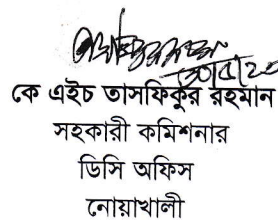 কে এইচ তাসফিকুর রহমান
সহকারী কমিশনার
ডিসি অফিস
নোয়াখালী